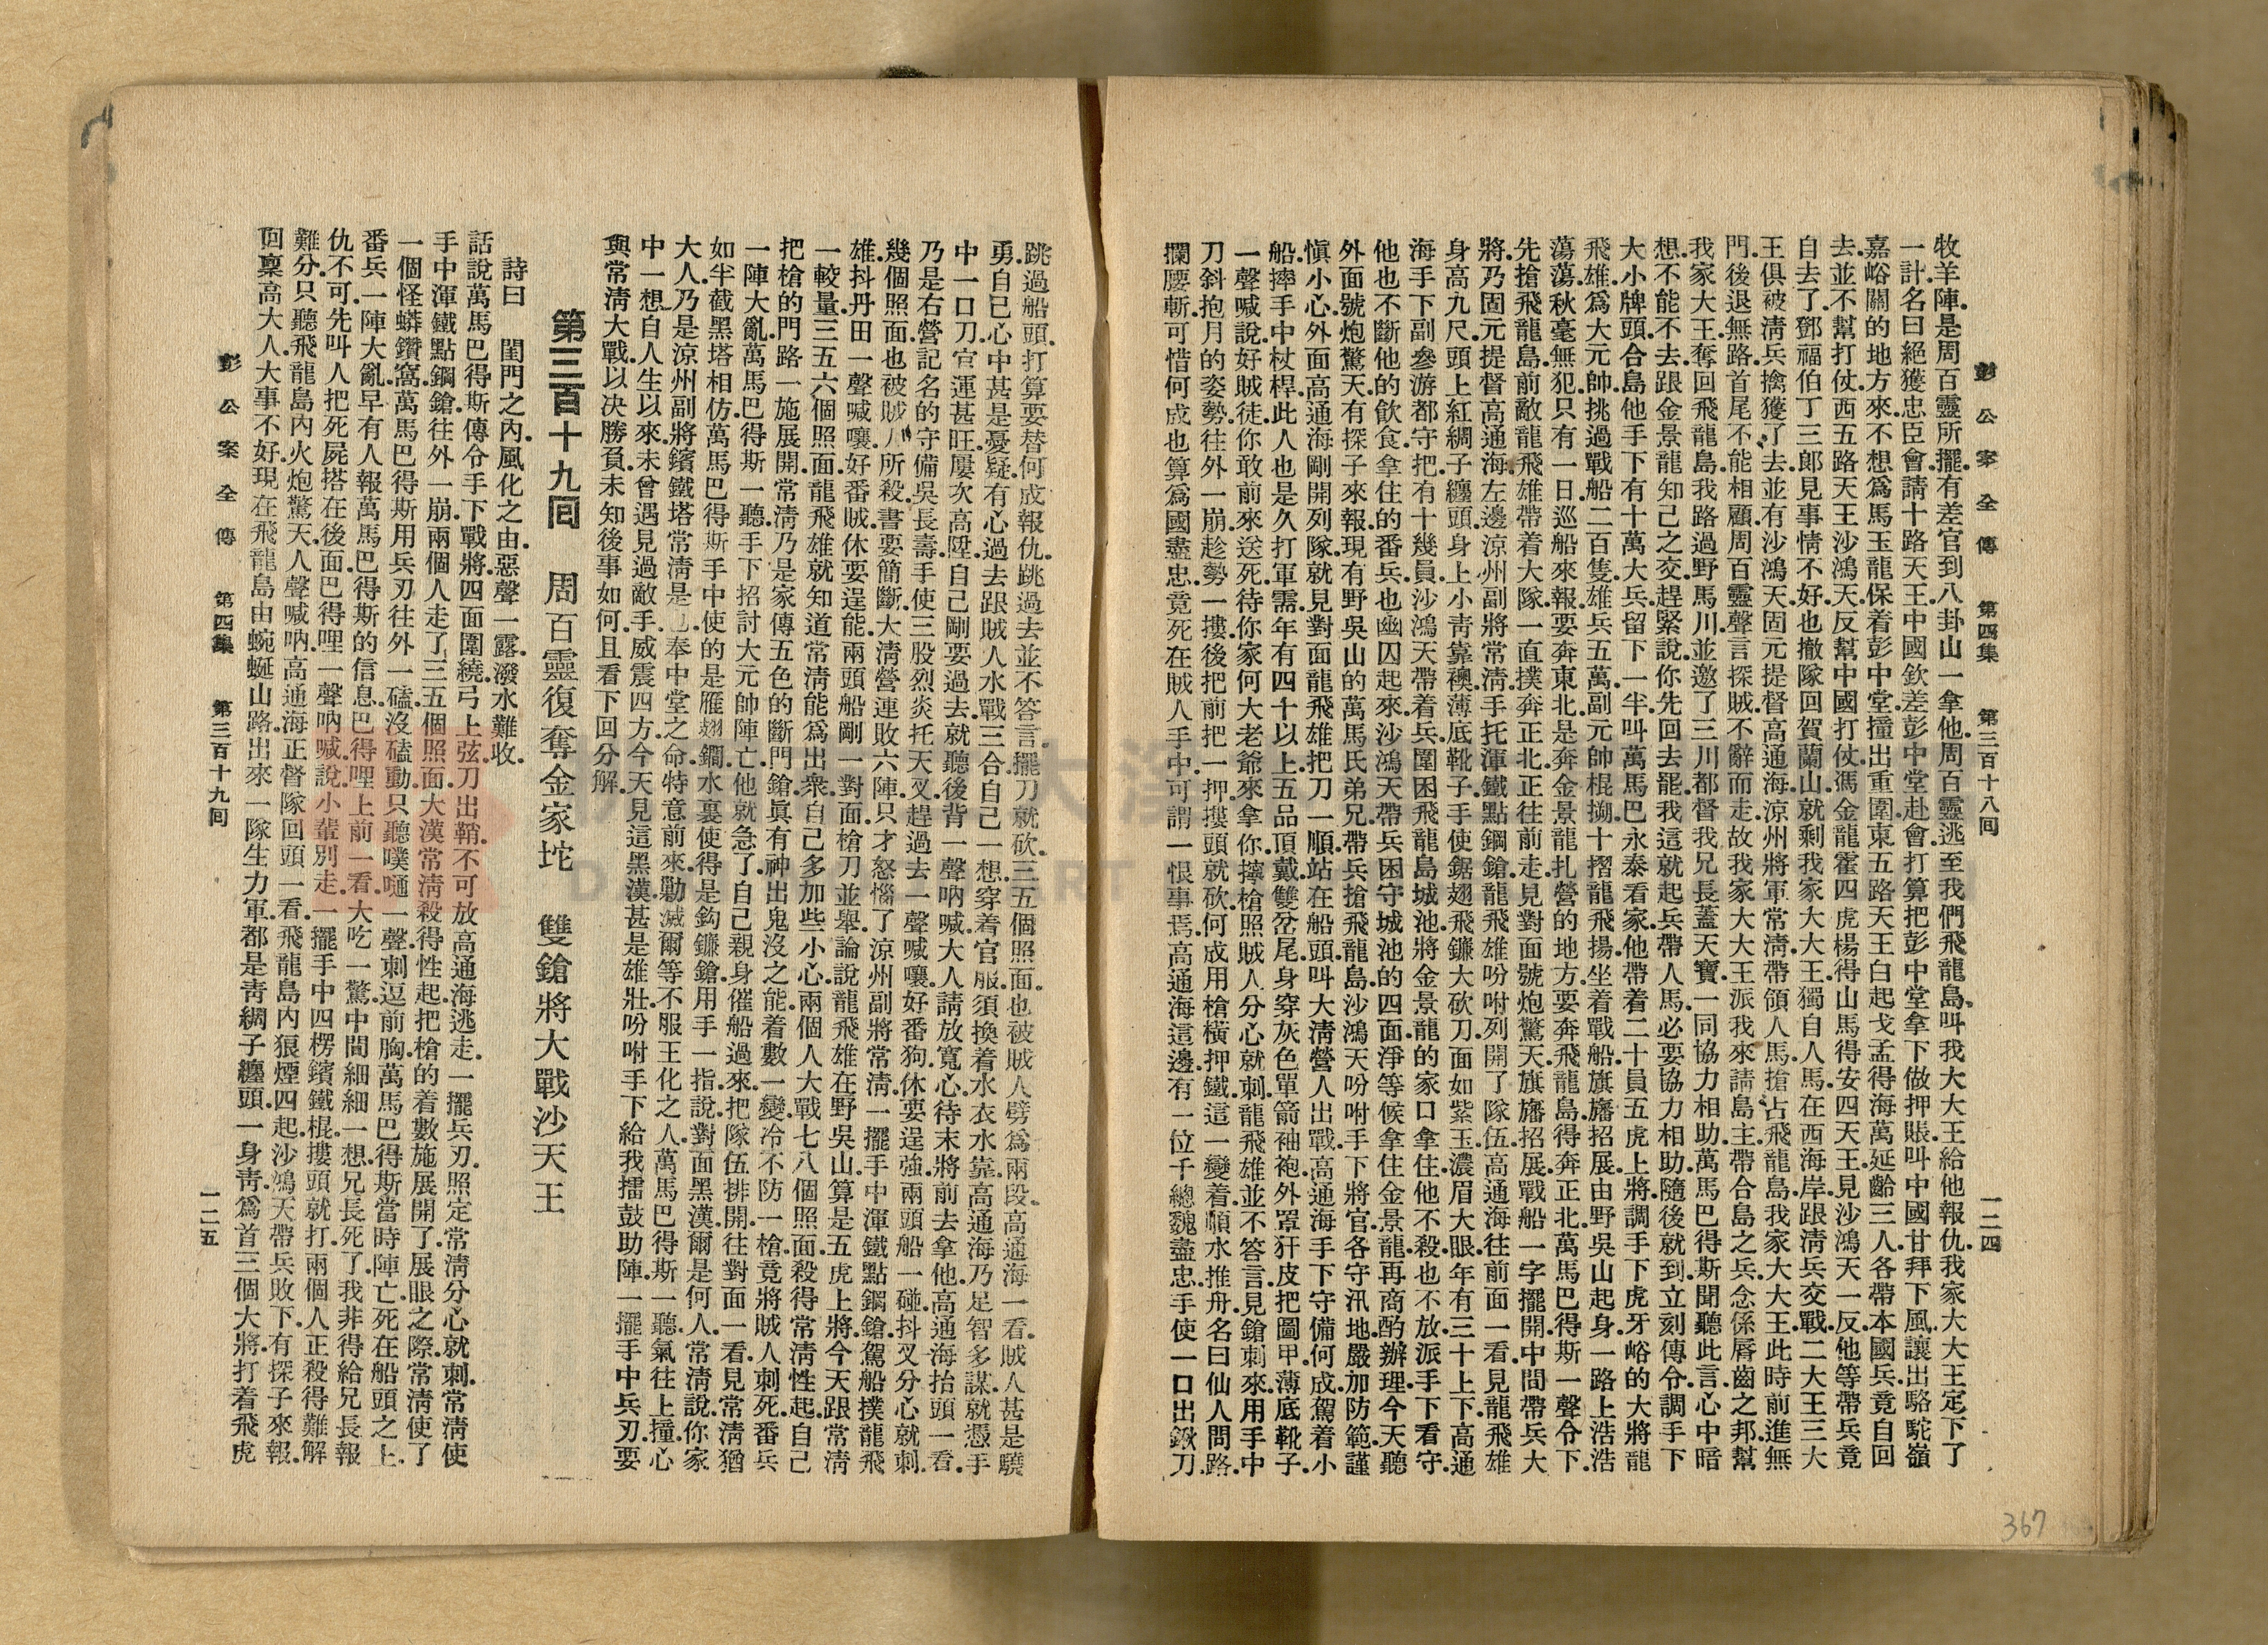 彭公案全傳 第四集 第三百十八回 一二四
牧羊陣.是周百靈所擺.有差官到八卦山一拿他.周百靈逃至我們飛龍島.叫我大大王給他報仇.我家大大王定下了
一計.名曰絕獲忠臣會.請十路天王.中國欽差彭中堂赴會.打算把彭中堂拿下做押賬.叫中國甘拜下風.讓出駱駝嶺
嘉峪關的地方來.不想爲馬玉龍保着彭中堂撞出重圍.東五路天王白起戈孟得海萬延齡三人各帶本國兵竟自回
去.並不幫打仗.西五路天王沙鴻天反幫中國打仗.馮金龍霍四虎楊得山馬得安四天王見沙鴻天一反.他等帶兵竟
自去了.鄧福伯丁三郎見事情不好.也撤隊回賀蘭山.就剩我家大大王獨自人馬.在西海岸跟淸兵交戰.二大王三大
王俱被淸兵擒獲了去.並有沙鴻天固元提督高通海涼州將軍常淸帶領人馬.搶占飛龍島.我家大大王此時前進無
門.後退無路.首尾不能相顧.周百靈聲言探賊.不辭而走.故我家大大王派我來請島主.帶合島之兵.念係唇齒之邦.幫
我家大王奪回飛龍島.我路過野馬川.並邀了三川都督我兄長蓋天寶.一同協力相助.萬馬巴得斯聞聽此言.心中暗
想.不能不去.跟金景龍知己之交.趕緊說.你先回去罷.我這就起兵.帶人馬必要協力相助.隨後就到.立刻傳令.調手下
大小牌頭.合島他手下有十萬大兵.留下一半.叫萬馬巴永泰看家.他帶着二十員五虎上將.調手下虎牙峪的大將龍
飛雄爲大元帥.挑過戰船二百隻.雄兵五萬.副元帥棍搠十摺龍飛揚坐着戰船.旗旛招展.由野吳山起身.一路上浩浩
蕩蕩.秋毫無犯.只有一日.巡船來報.要奔東北.是奔金景龍扎營的地方.要奔飛龍島得奔正北.萬馬巴得斯一聲令下.
先搶飛龍島.前敵龍飛雄帶着大隊.一直撲奔正北.正往前走.見對面號炮驚天.旗旛招展.戰船一字擺開.中間帶兵大
將.乃固元提督高通海.左邊涼州副將常淸.手托渾鐵點鋼鎗.龍飛雄吩咐列開了隊伍.高通海往前面一看.見龍飛雄
身高九尺.頭上紅綢子纏頭.身上小靑靠襖.薄底靴子.手使鋸翅飛鐮大砍刀.面如紫玉.濃眉大眼.年有三十上下.高通
海手下副參游都守把有十幾員.沙鴻天帶着兵.圍困飛龍島城池.將金景龍的家口拿住.他不殺也不放.派手下看守.
他也不斷他的飮食.拿住的番兵.也幽囚起來.沙鴻天帶兵困守城池的四面.淨等候拿住金景龍.再商酌辦理.今天聽
外面號炮驚天.有探子來報.現有野吳山的萬馬氏弟兄.帶兵搶飛龍島.沙鴻天吩咐手下將官各守汛地.嚴加防範.謹
愼小心.外面高通海剛開列隊.就見對面龍飛雄把刀一順.站在船頭.叫大淸營人出戰.高通海手下守備何成.駕着小
船.摔手中杖桿.此人也是久打軍需.年有四十以上.五品頂戴.雙岔尾.身穿灰色單箭袖袍.外罩犴皮把圖甲.薄底靴子.
一聲喊說.好賊徒.你敢前來送死.待你家何大老爺來拿你.擰槍照賊人分心就刺.龍飛雄並不答言.見鎗刺來.用手中
刀斜抱月的姿勢.往外一崩.趁勢一摟.後把前把一押.摟頭就砍.何成用槍橫押鐵.這一變着.順水推舟.名曰仙人問路.
攔腰斬.可惜何成也算爲國盡忠.竟死在賊人手中.可謂一恨事焉.高通海這邊.有一位千總魏盡忠.手使一口出鍬刀.
跳過船頭.打算要替何成報仇.跳過去並不答言.擺刀就砍.三五個照面.也被賊人劈爲兩段.高通海一看.賊人甚是驍
勇.自己心中甚是憂疑.有心過去跟賊人水戰三合.自己一想.穿着官服.須換着水衣水靠.高通海乃足智多謀.就憑手
中一口刀.官運甚旺.屢次高陞.自己剛要過去.就聽後背一聲吶喊.大人請放寬心.待末將前去拿他.高通海抬頭一看.
乃是右營記名的守備吳長壽.手使三股烈炎托天叉.趕過去一聲喊嚷.好番狗.休要逞強.兩頭船一碰.抖叉分心就刺.
幾個照面也被賊人所殺.書要簡斷.大淸營連敗六陣.只才怒惱了涼州副將常淸.一擺手中渾鐵點鋼鎗.駕船撲龍飛
雄.抖丹田一聲喊嚷.好番賊.休要逞能.兩頭船剛一對面.槍刀並舉.論說龍飛雄在野吳山.算是五虎上將.今天跟常淸
一較量.三五六個照面.龍飛雄就知道常淸能爲出衆.自己多加些小心.兩個人大戰七八個照面.殺得常淸性起.自己
把槍的門路一施展開.常淸乃是家傳五色的斷門鎗.眞有神出鬼沒之能.着數一變.冷不防一槍.竟將賊人刺死.番兵
一陣大亂.萬馬巴得斯一聽.手下招討大元帥陣亡.他就急了.自己親身催船過來.把隊伍排開.往對面一看.見常淸猶
如半截黑塔相仿.萬馬巴得斯手中使的是雁翅鐗.水裏使得是鈎鐮鎗.用手一指說.對面黑漢.爾是何人.常淸說.你家
大人.乃是涼州副將鑌鐵塔常淸是也.奉中堂之命.特意前來勦滅爾等不服王化之人.萬馬巴得斯一聽.氣往上撞.心
中一想.自人生以來.未曾遇見過敵手.威震四方.今天見這黑漢.甚是雄壯.吩咐手下給我擂鼓助陣.一擺手中兵刃.要
與常淸大戰.以决勝負.未知後事如何.且看下回分解.
第三百十九回 周百靈復奪金家坨 雙鎗將大戰沙天王
詩曰 閨門之內.風化之由.惡聲一露.潑水難收.
話說萬馬巴得斯.傳令手下戰將.四面圍繞.弓上弦.刀出鞘.不可放高通海逃走.一擺兵刃.照定常淸分心就刺.常淸使
手中渾鐵點鋼鎗往外一崩.兩個人走了三五個照面.大漢常淸殺得性起.把槍的着數施展開了.展眼之際.常淸使了
一個怪蟒鑽窩.萬馬巴得斯用兵刃往外一磕.沒磕動.只聽噗嗵一聲.刺逗前胸.萬馬巴得斯當時陣亡.死在船頭之上.
番兵一陣大亂.早有人報萬馬巴得斯的信息.巴得哩上前一看.大吃一驚.中間細細一想.兄長死了.我非得給兄長報
仇不可.先叫人把死屍搭在後面.巴得哩一聲吶喊.說.小輩別走.一擺手中四楞鑌鐵棍.摟頭就打.兩個人正殺得難解
難分.只聽飛龍島內火炮驚天.人聲喊吶.高通海正督隊回頭一看.飛龍島內狼煙四起.沙鴻天帶兵敗下.有探子來報.
回稟高大人.大事不好.現在飛龍島由蜿蜒山路.出來一隊生力軍.都是靑綢子纏頭.一身靑.爲首三個大將.打着飛虎
彭公案全傳 第四集 第三百十九回 一二五
367